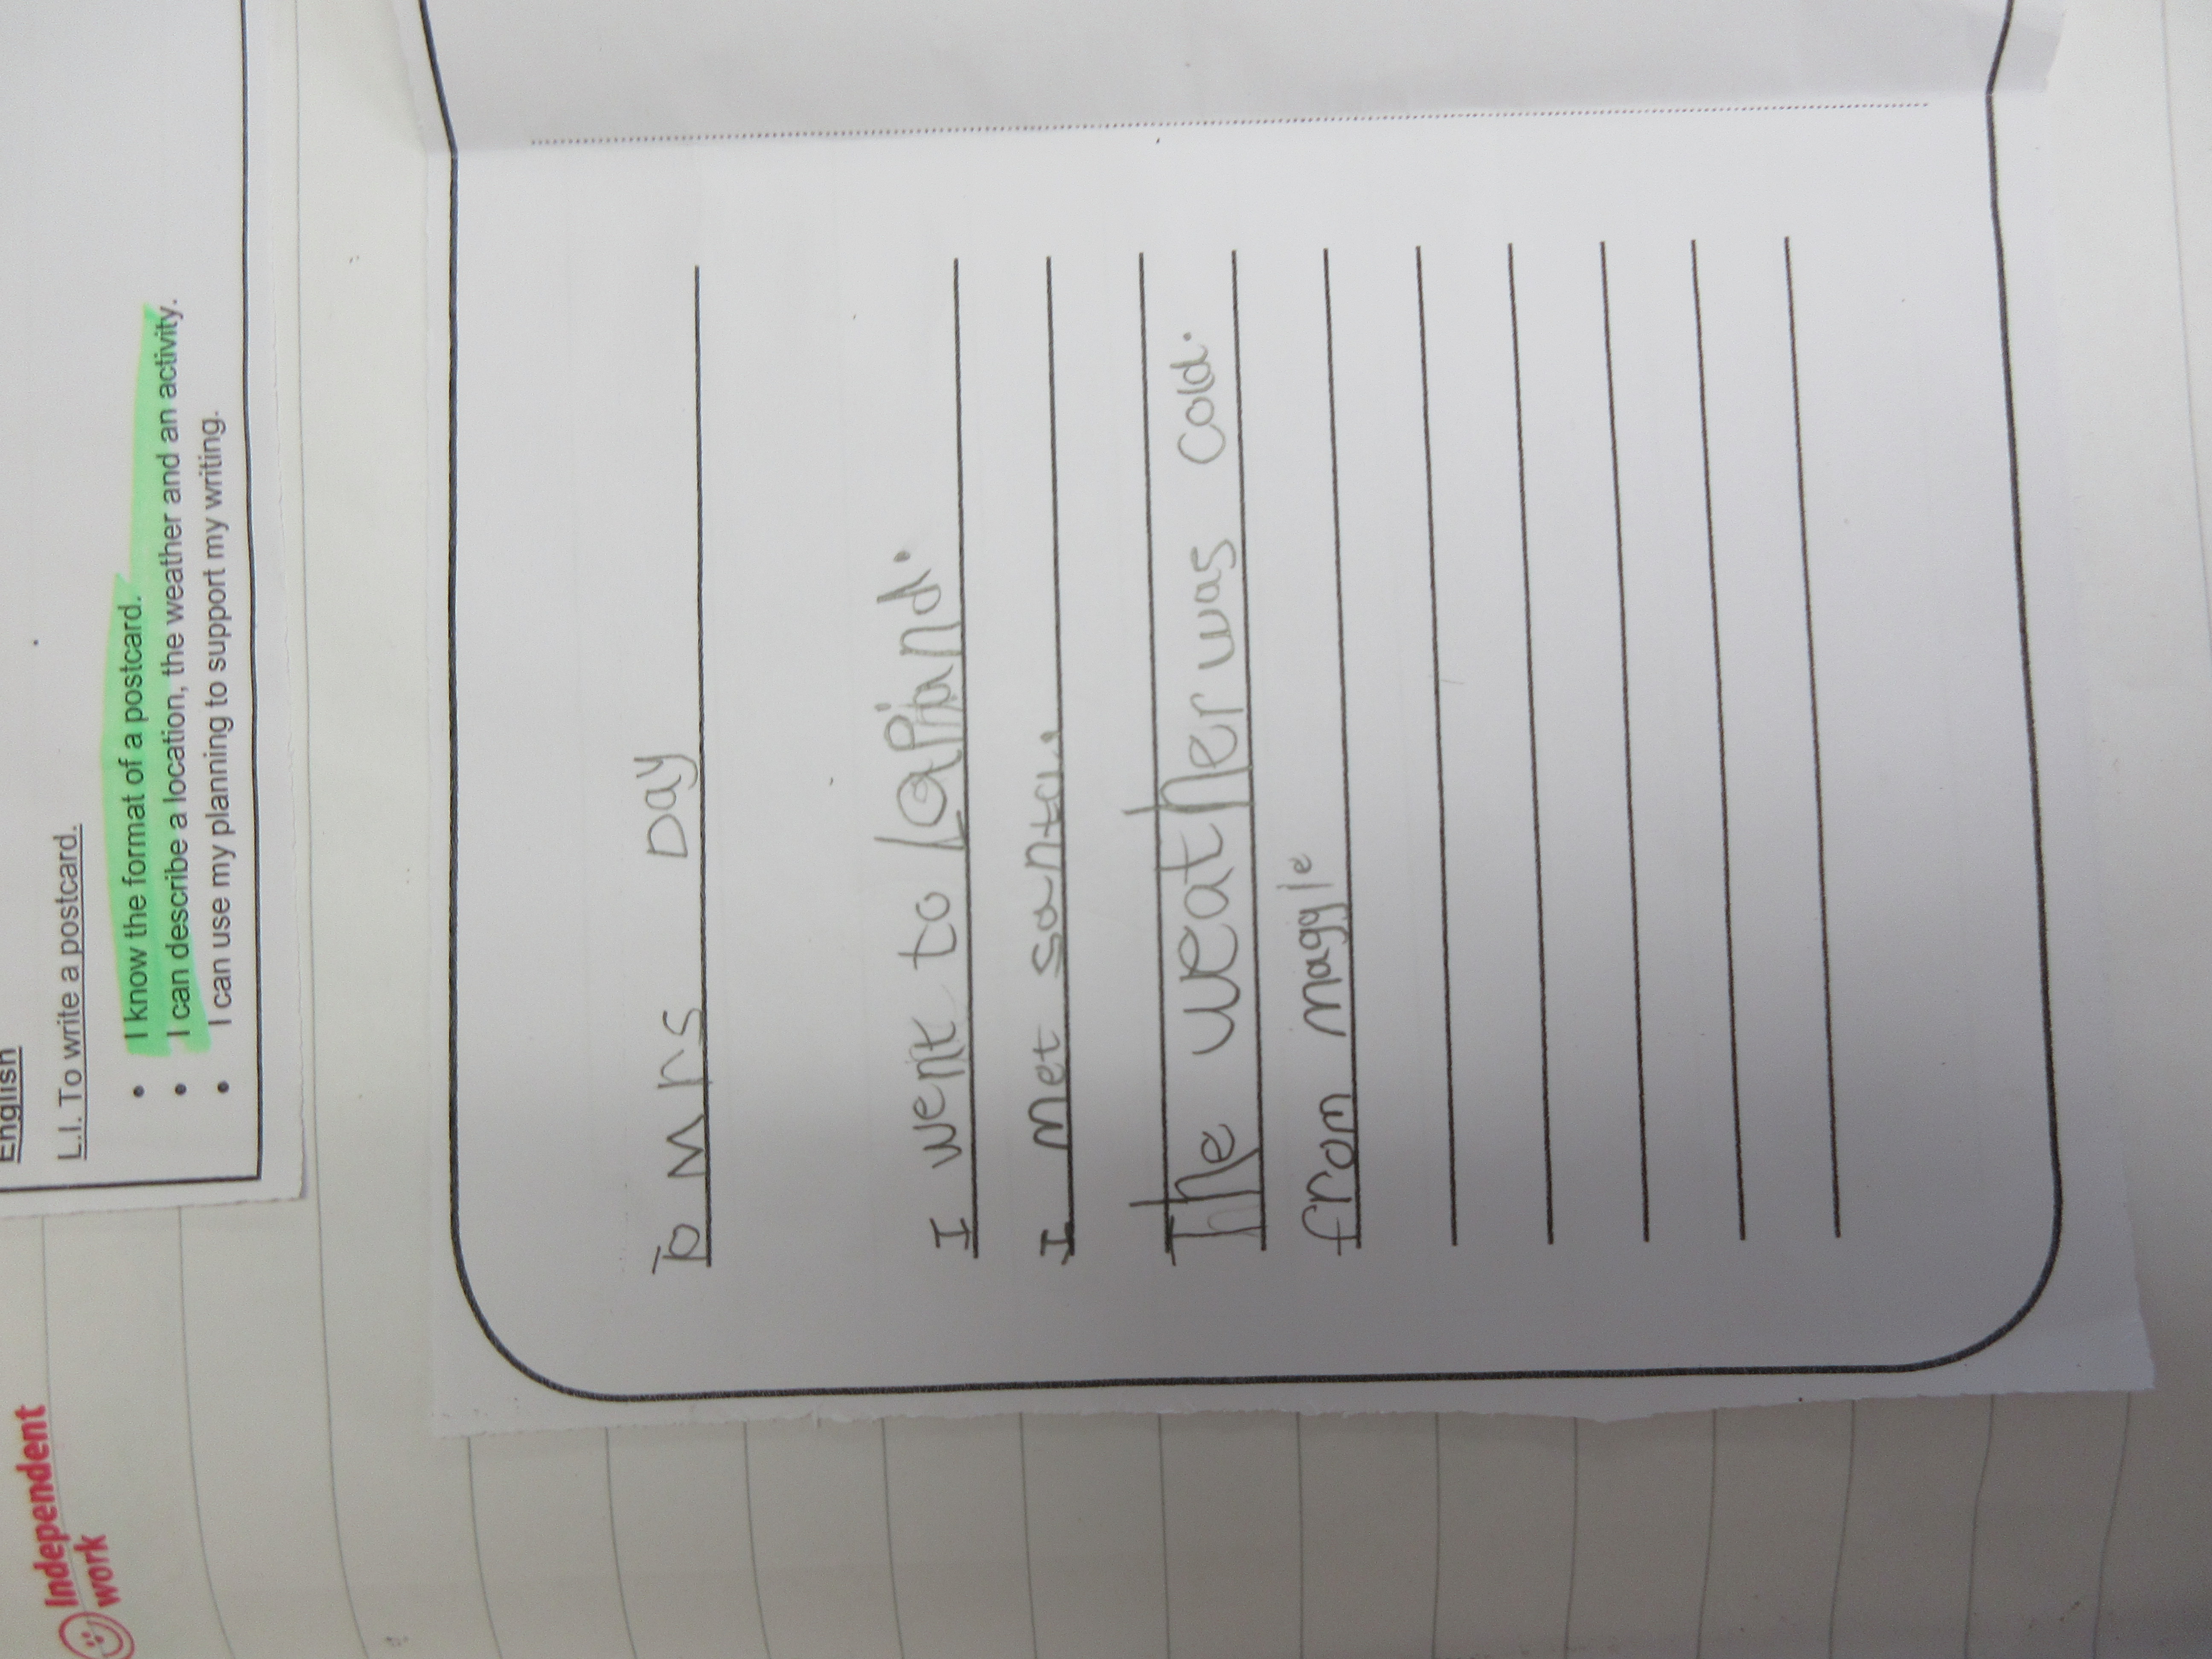 English
L.I. To write a postcard.
• I know the format of a postcard.
• I can describe a location, the weather and an activity.
• I can use my planning to support my writing.
Independent
work
To Mrs Day
I went to lapland.
I Met santa.
The weather was cold.
from maggie